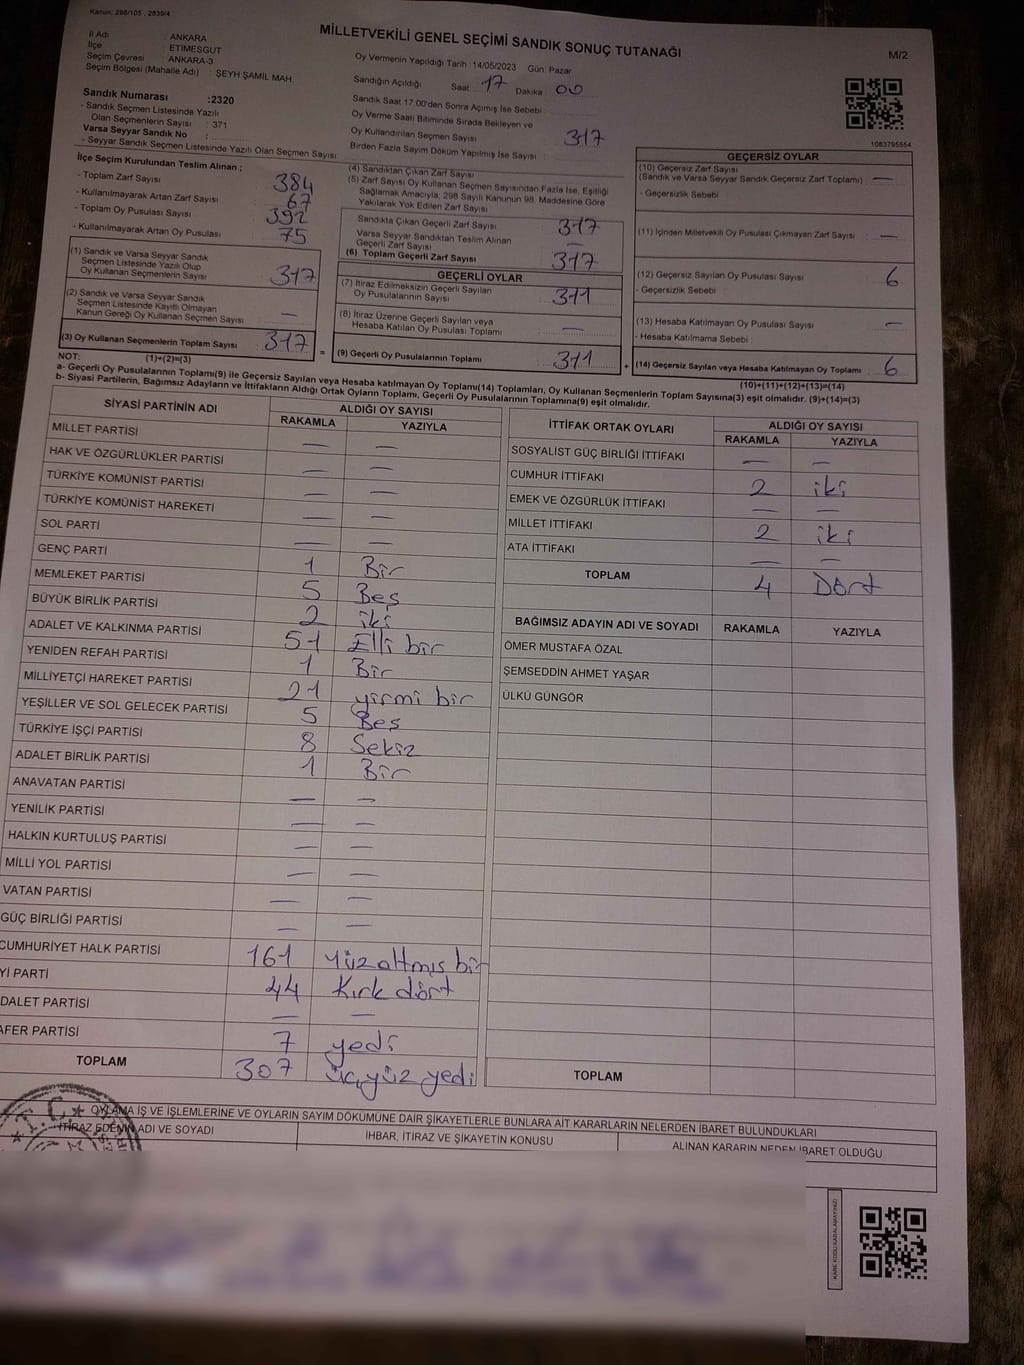 Kanun: 298/105 , 2839/4
MİLLETVEKİLİ GENEL SEÇİMİ SANDIK SONUÇ TUTANAĞI
M/2
İl Adı ANKARA
İlçe ETİMESGUT
Seçim Çevresi : ANKARA-3
Seçim Bölgesi (Mahalle Adı) : ŞEYH ŞAMİL MAH.
Oy Vermenin Yapıldığı Tarih : 14/05/2023 Gün: Pazar
Sandığın Açıldığı Saat 17 Dakika : 00
Sandık Saat 17:00'den Sonra Açımış İse Sebebi
Oy Verme Saati Bitiminde Sırada Bekleyen ve
Oy Kullandırılan Seçmen Sayısı 317
Birden Fazla Sayım Döküm Yapılmış İse Sayısı :
Sandık Numarası :2320
- Sandık Seçmen Listesinde Yazılı
Olan Seçmenlerin Sayısı : 371
Varsa Seyyar Sandık No :
- Seyyar Sandık Seçmen Listesinde Yazılı Olan Seçmen Sayısı
1083795554
İlçe Seçim Kurulundan Teslim Alınan ;
- Toplam Zarf Sayısı 384
- Kullanılmayarak Artan Zarf Sayısı 67
- Toplam Oy Pusulası Sayısı 392
- Kullanılmayarak Artan Oy Pusulası 75
(1) Sandık ve Varsa Seyyar Sandık
Seçmen Listesinde Yazılı Olup
Oy Kullanan Seçmenlerin Sayısı 317
(2) Sandık ve Varsa Seyyar Sandık
Seçmen Listesinde Kayıtlı Olmayan
Kanun Gereği Oy Kullanan Seçmen Sayısı —
(3) Oy Kullanan Seçmenlerin Toplam Sayısı 317
(4) Sandıktan Çıkan Zarf Sayısı
(5) Zarf Sayısı Oy Kullanan Seçmen Sayısından Fazla İse, Eşitliği
Sağlamak Amacıyla, 298 Sayılı Kanunun 98. Maddesine Göre
Yakılarak Yok Edilen Zarf Sayısı
Sandıkta Çıkan Geçerli Zarf Sayısı 317
Varsa Seyyar Sandıktan Teslim Alınan
Geçerli Zarf Sayısı —
(6) Toplam Geçerli Zarf Sayısı 317
GEÇERLİ OYLAR
(7) İtiraz Edilmeksizin Geçerli Sayılan
Oy Pusulalarının Sayısı 311
(8) İtiraz Üzerine Geçerli Sayılan veya
Hesaba Katılan Oy Pusulası Toplamı —
= (9) Geçerli Oy Pusulalarının Toplamı 311 +
GEÇERSİZ OYLAR
(10) Geçersiz Zarf Sayısı
(Sandık ve Varsa Seyyar Sandık Geçersiz Zarf Toplamı) —
- Geçersizlik Sebebi
(11) İçinden Milletvekili Oy Pusulası Çıkmayan Zarf Sayısı —
(12) Geçersiz Sayılan Oy Pusulası Sayısı 6
- Geçersizlik Sebebi
(13) Hesaba Katılmayan Oy Pusulası Sayısı —
- Hesaba Katılmama Sebebi
(14) Geçersiz Sayılan veya Hesaba Katılmayan Oy Toplamı 6
NOT: (1)+(2)=(3)
(10)+(11)+(12)+(13)=(14)
a- Geçerli Oy Pusulalarının Toplamı(9) ile Geçersiz Sayılan veya Hesaba katılmayan Oy Toplamı(14) Toplamları, Oy Kullanan Seçmenlerin Toplam Sayısına(3) eşit olmalıdır. (9)+(14)=(3)
b- Siyasi Partilerin, Bağımsız Adayların ve İttifakların Aldığı Ortak Oyların Toplamı, Geçerli Oy Pusulalarının Toplamına(9) eşit olmalıdır.
SİYASİ PARTİNİN ADI ALDIĞI OY SAYISI
RAKAMLA YAZIYLA
MİLLET PARTİSİ — —
HAK VE ÖZGÜRLÜKLER PARTİSİ — —
TÜRKİYE KOMÜNİST PARTİSİ — —
TÜRKİYE KOMÜNİST HAREKETİ — —
SOL PARTİ — —
GENÇ PARTİ 1 Bir
MEMLEKET PARTİSİ 5 Beş
BÜYÜK BİRLİK PARTİSİ 2 iki
ADALET VE KALKINMA PARTİSİ 51 Elli bir
YENİDEN REFAH PARTİSİ 1 Bir
MİLLİYETÇİ HAREKET PARTİSİ 21 yirmi bir
YEŞİLLER VE SOL GELECEK PARTİSİ 5 Beş
TÜRKİYE İŞÇİ PARTİSİ 8 Sekiz
ADALET BİRLİK PARTİSİ 1 Bir
ANAVATAN PARTİSİ — —
YENİLİK PARTİSİ — —
HALKIN KURTULUŞ PARTİSİ — —
MİLLİ YOL PARTİSİ — —
VATAN PARTİSİ — —
GÜÇ BİRLİĞİ PARTİSİ — —
CUMHURİYET HALK PARTİSİ 161 yüzaltmış bir
Yİ PARTİ 44 Kırk dört
DALET PARTİSİ — —
AFER PARTİSİ 7 yedi
TOPLAM 307 üçyüz yedi
İTTİFAK ORTAK OYLARI ALDIĞI OY SAYISI
RAKAMLA YAZIYLA
SOSYALİST GÜÇ BİRLİĞİ İTTİFAKI — —
CUMHUR İTTİFAKI 2 iki
EMEK VE ÖZGÜRLÜK İTTİFAKI — —
MİLLET İTTİFAKI 2 iki
ATA İTTİFAKI — —
TOPLAM 4 Dört
BAĞIMSIZ ADAYIN ADI VE SOYADI RAKAMLA YAZIYLA
ÖMER MUSTAFA ÖZAL
ŞEMSEDDİN AHMET YAŞAR
ÜLKÜ GÜNGÖR
TOPLAM
T.C.
OYLAMA İŞ VE İŞLEMLERİNE VE OYLARIN SAYIM DÖKÜMÜNE DAİR ŞİKAYETLERLE BUNLARA AİT KARARLARIN NELERDEN İBARET BULUNDUKLARI
İTİRAZ EDENİN ADI VE SOYADI İHBAR, İTİRAZ VE ŞİKAYETİN KONUSU ALINAN KARARIN NEDEN İBARET OLDUĞU
KARE KODU KARALAMAYINIZ!